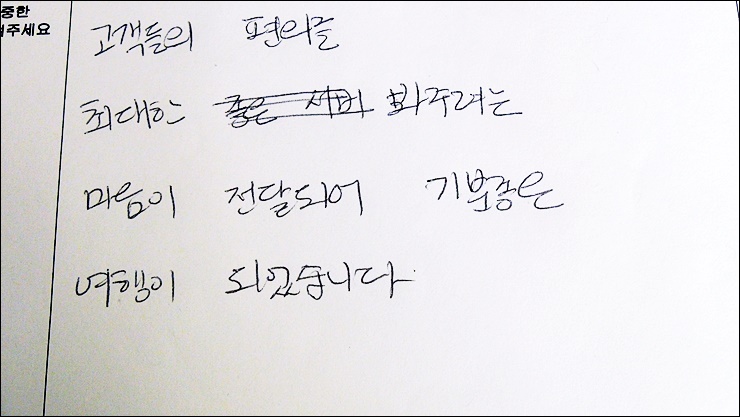 중한
려주세요
고객들의 편의를
최대한 좋은 서비 봐주려는
마음이 전달되어 기분좋은
여행이 되었습니다